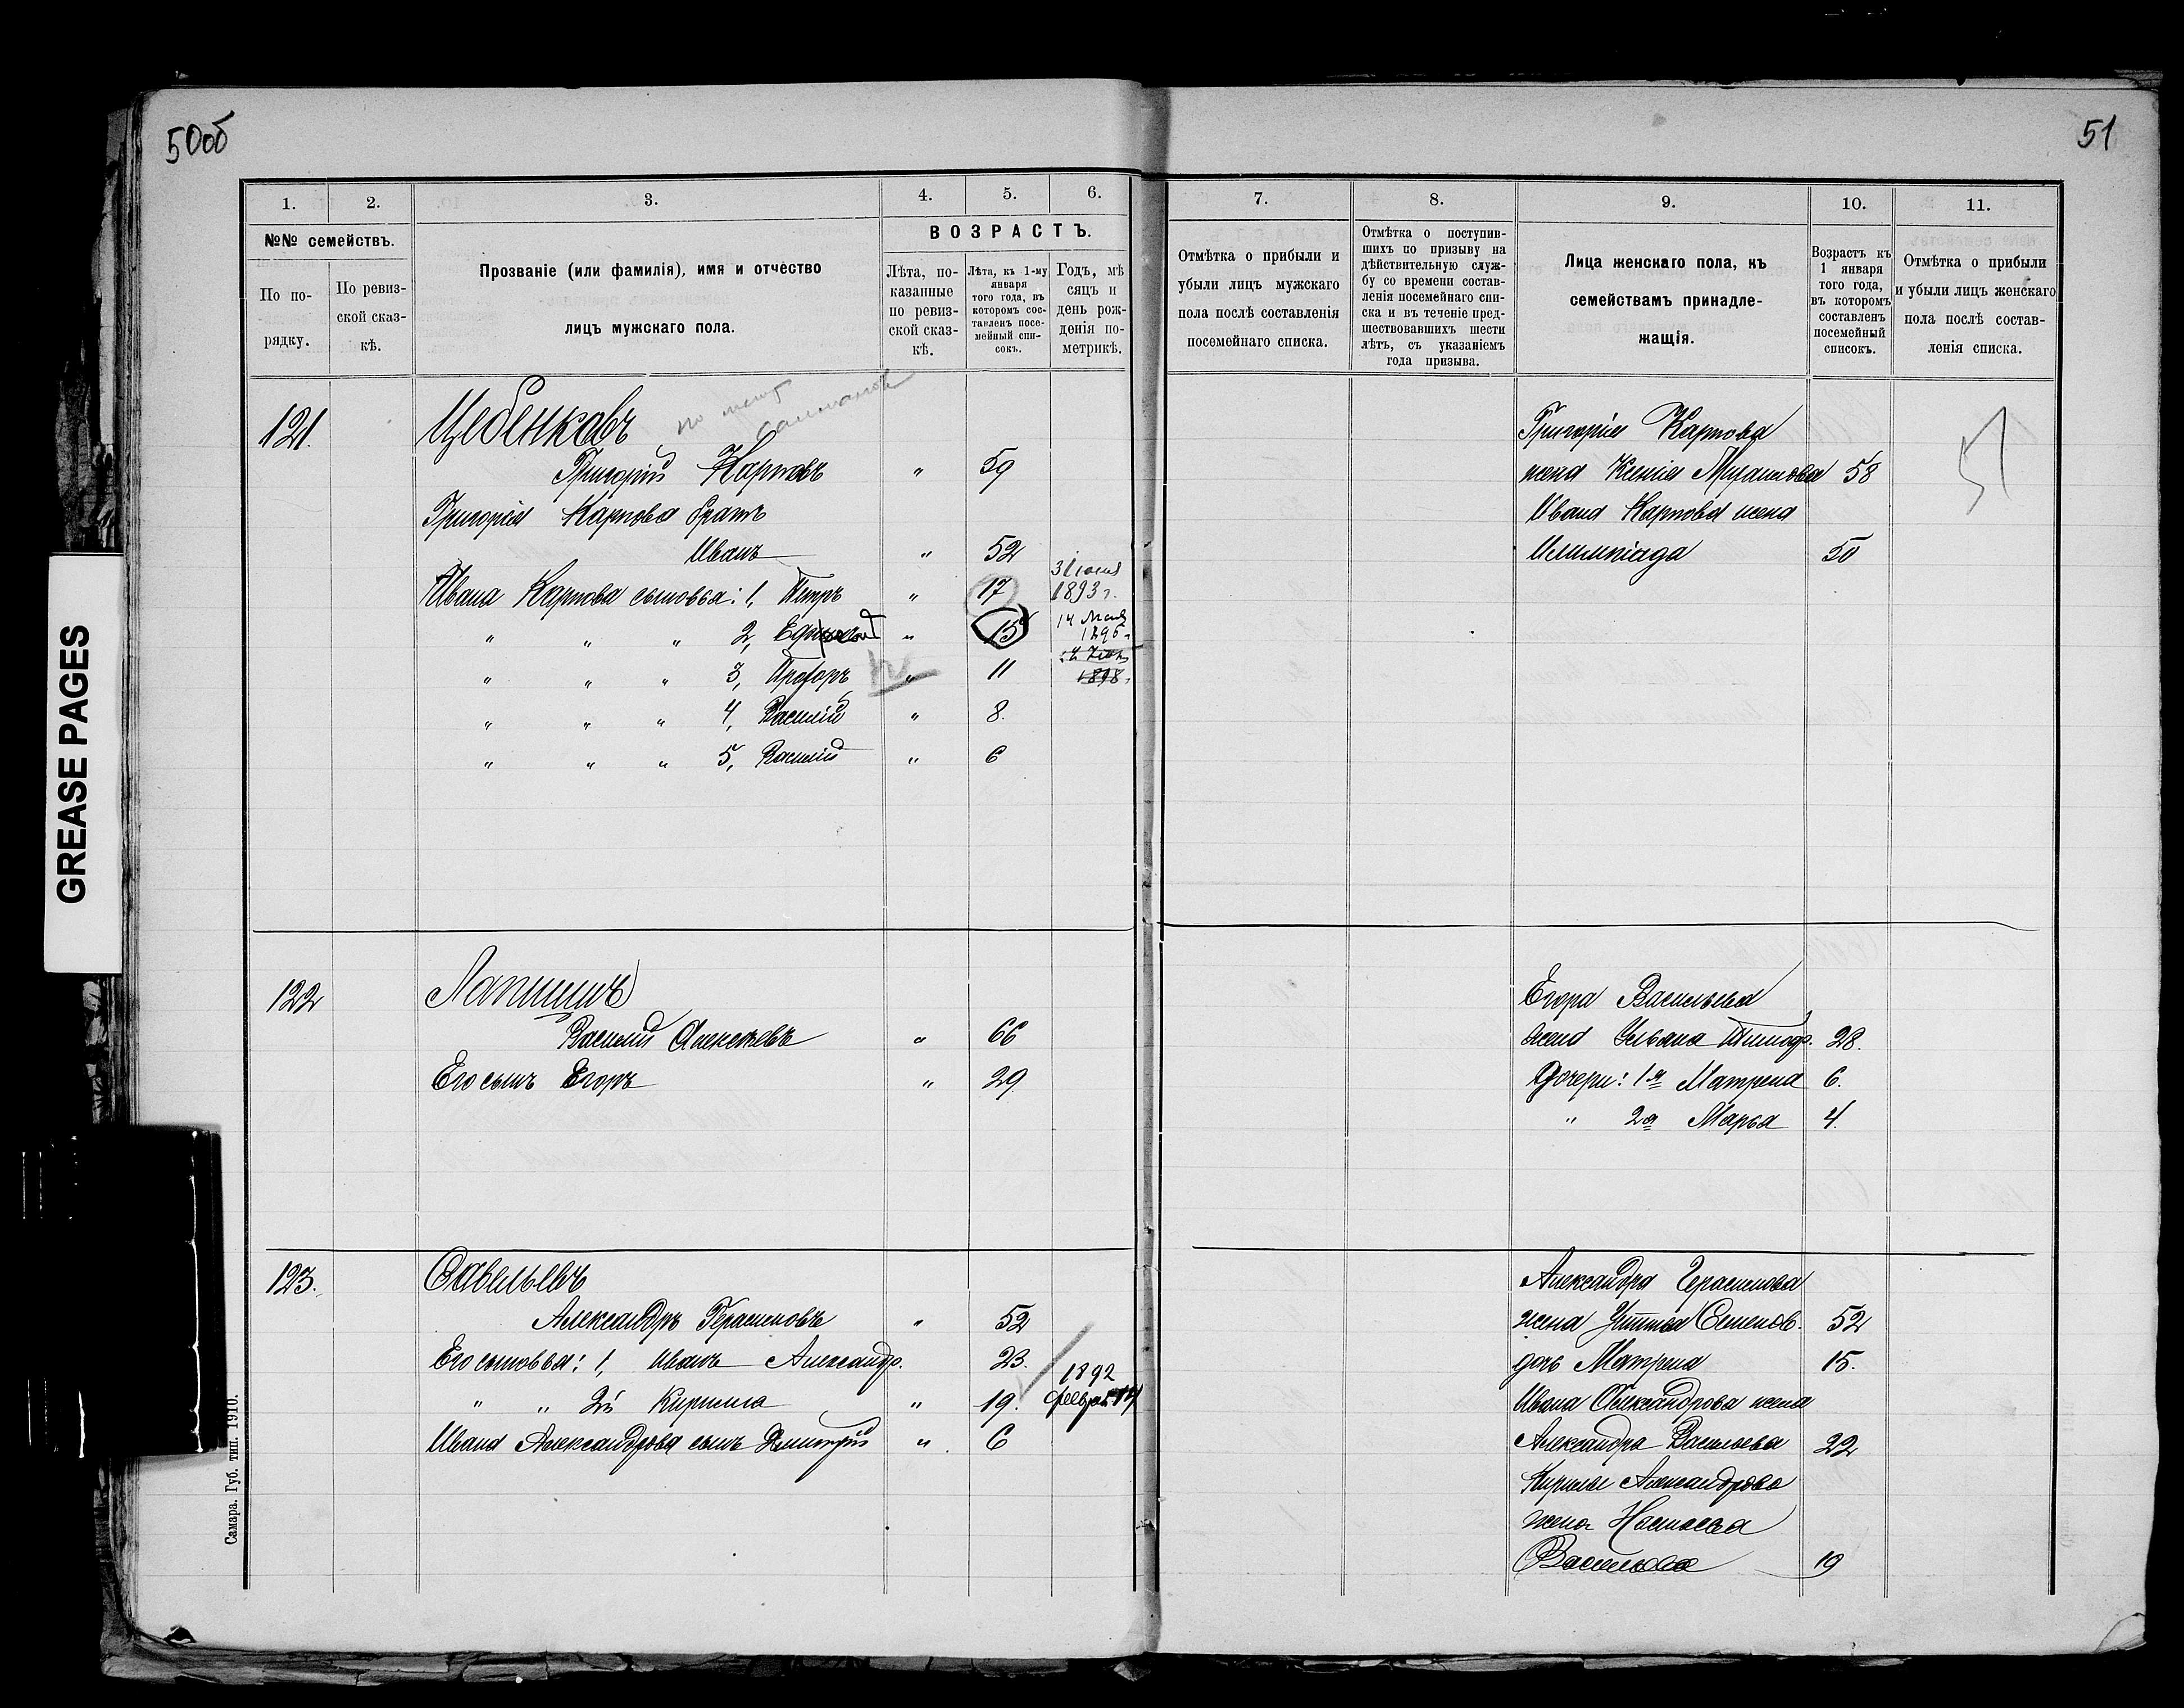 50об
51
1.
2.
3.
4.
5.
6.
7.
8.
9.
10.
11.
№№ семействъ.
По по-
рядку.
По ревиз-
ской сказ-
кѣ.
Прозваніе (или фамилія), имя и отчество
лицъ мужскаго пола.
ВОЗРАСТЪ.
Лѣта, по-
казанные
по ревиз-
ской сказ-
кѣ.
Лѣта, къ 1-му
января
того года, въ
которомъ сос-
тавленъ посе-
мейный спи-
сокъ.
Годъ, мѣ
сяцъ и
день рож-
денія по-
метрикѣ.
Отмѣтка о прибыли и
убыли лицъ мужскаго
пола послѣ составленія
посемейнаго списка.
Отмѣтка о поступив-
шихъ по призыву на
дѣйствительную служ-
бу со времени состав-
ленія посемейнаго спи-
ска и въ теченіе пред-
шествовавшихъ шести
лѣтъ, съ указаніемъ
года призыва.
Лица женскаго пола, къ
семействамъ принадле-
жащія.
Возрастъ къ
1 января
того года,
въ которомъ
составленъ
посемейный
списокъ.
Отмѣтка о прибыли
и убыли лицъ женскаго
пола послѣ состав-
ленія списка.
121.
по
Григорій Карповъ " 59
Григорія Карпова братъ
Иванъ " 52
Ивана Карпова сыновья: 1, Петръ " 17 3 Іюня 1893 г.
" " " 2, " 15 14
" " " 3, Прохоръ " 11 1898
" " " 4, Василій " 8.
" " " 5, Василій " 6
Григорія Карпова
жена Ксенія 58
Ивана Карпова жена
50
122
Лапшинъ
Василій Алексѣевъ " 66
Его сынъ Егоръ " 29
Егора Васильева
жена Ульяна Тимоф. 28.
Дочери: 1я Матрена 6.
" 2я Марья 4.
123.
Савельевъ
Александръ Герасимовъ " 52
Его сыновья: 1, Иванъ Александр. 23.
" " 2й Кирилла " 19. 1892 феврал 14
Ивана Александрова сынъ Дмитрій " 6
Александра Герасимова
жена Устинья Семенов. 52
дочь Матрена 15.
Ивана Александрова жена
Александра Васильева 22
Кирилы Александрова
жена Настасья
Васильева 19
Самара. Губ. тип. 1910.
GREASE PAGES